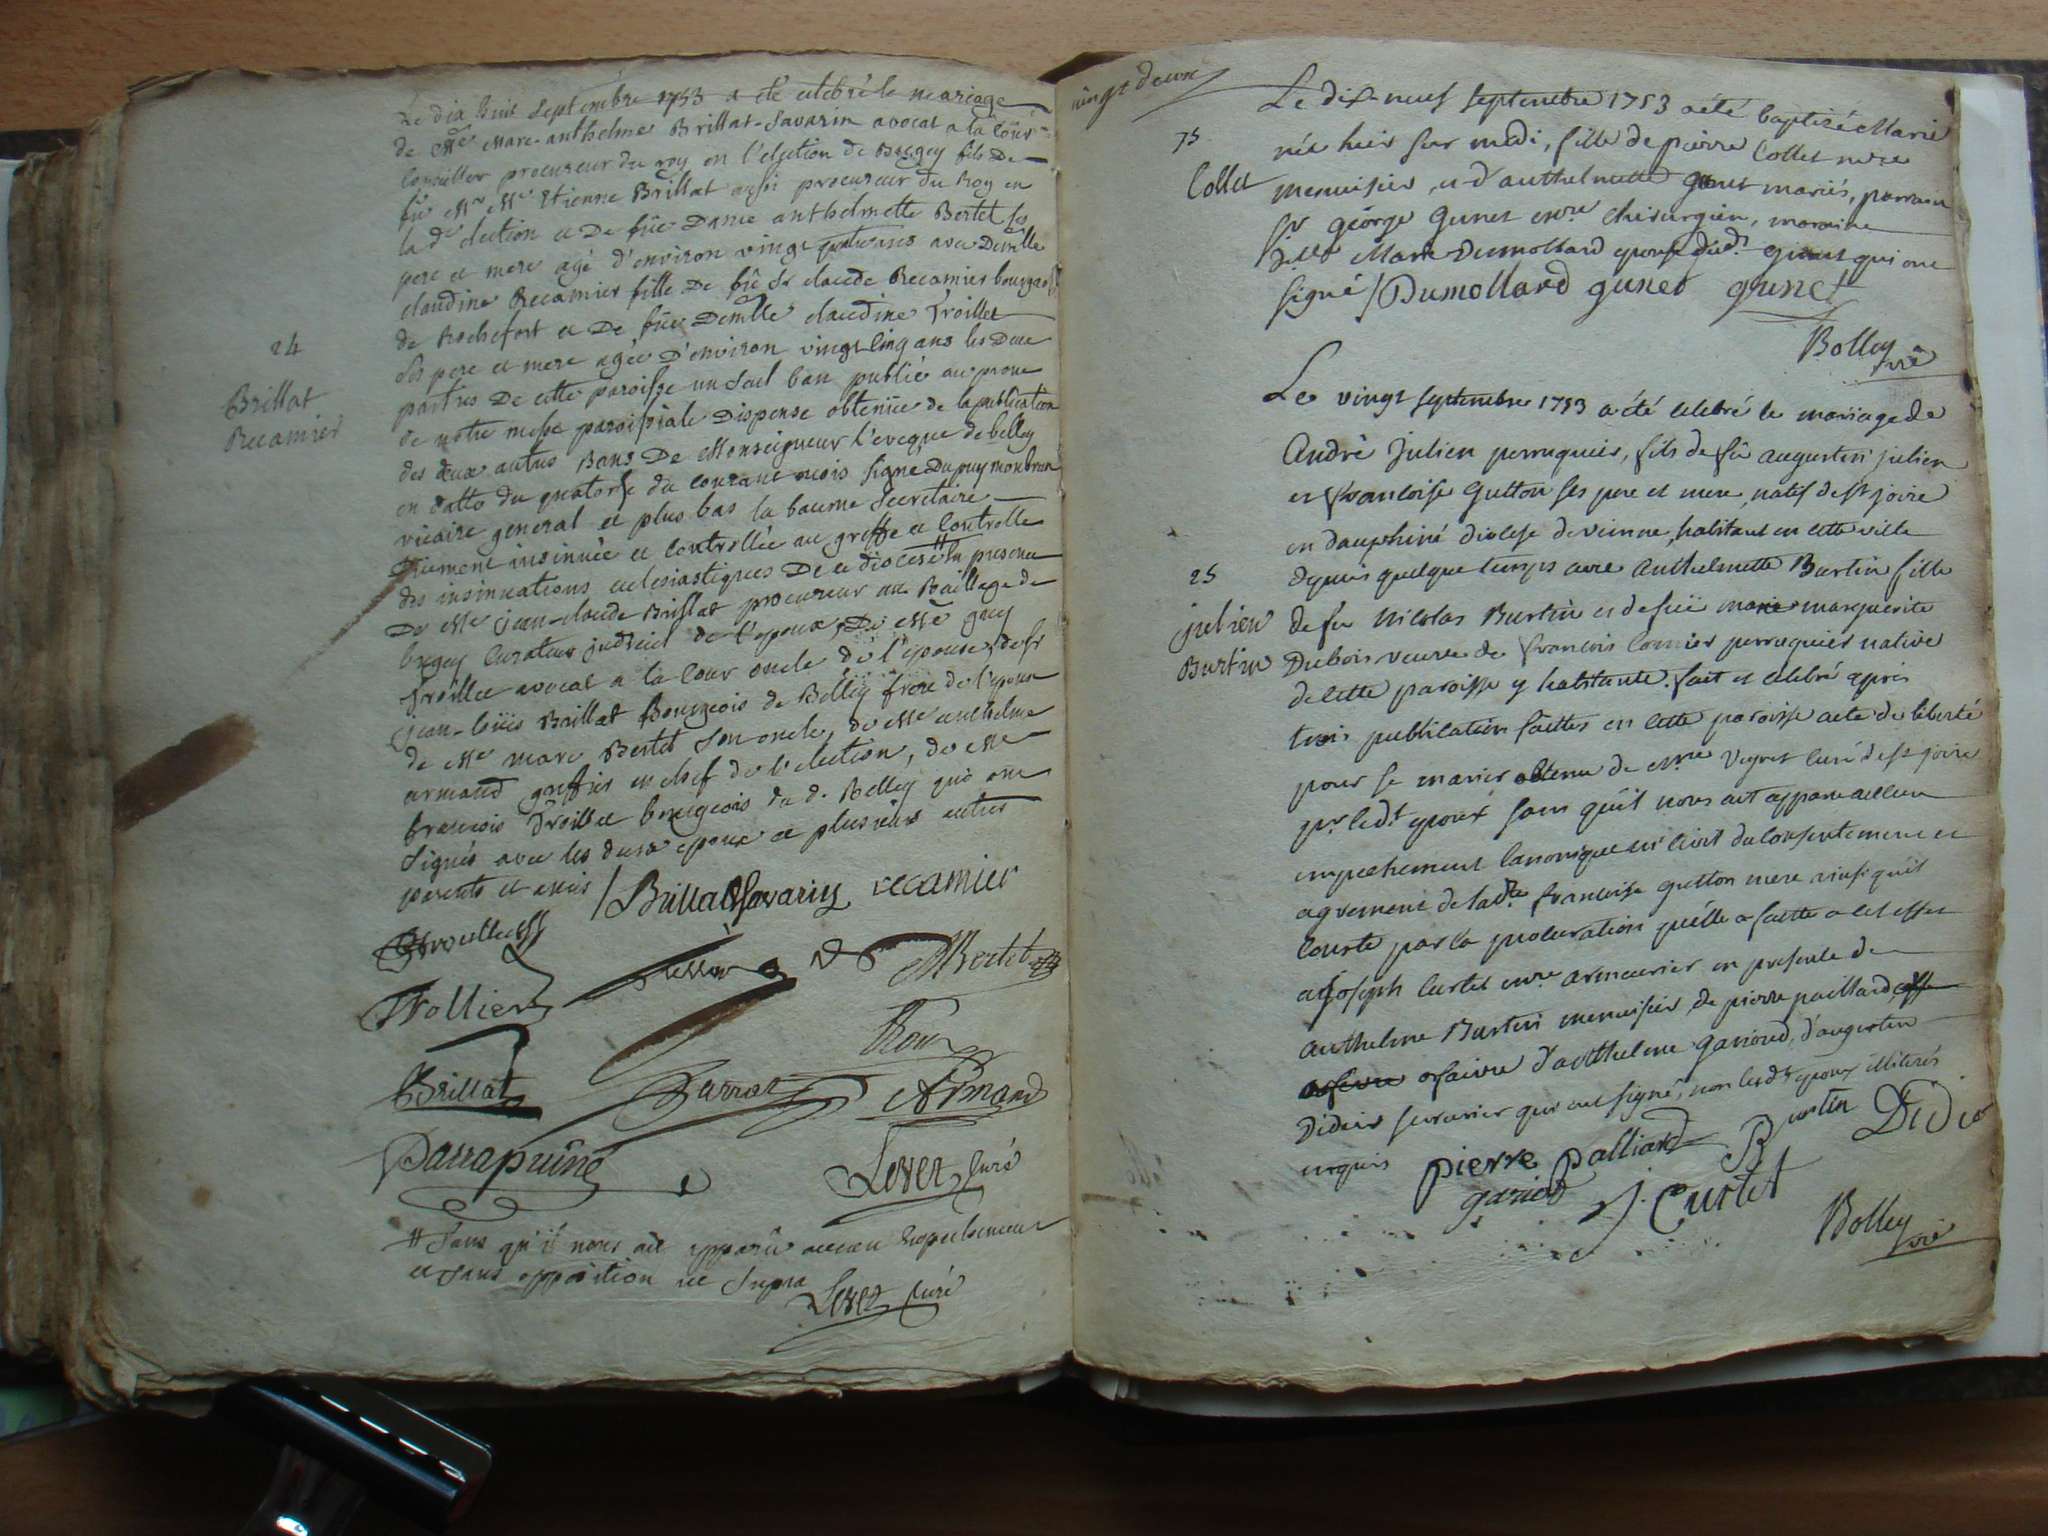 Le dix huit Septembre 1753 a été celebré le mariage
de Me Marc-anthelme Brillat-Savarin avocat a la Cour
Conseiller procureur du roy en l'election de Bugey fils de
fû Mr Me Etienne Brillat aussi procureur du Roy en
la de election et De fûe Dame anthelmette Bertet ses
pere et mere agé d'environ vingt quatre ans avec Demlle
claudine Recamier fille De fû Sr claude Recamier bourgeois
de Rochefort et De fûe Demlle claudine Troillet
24
ses pere et mere agée D'environ vingt cinq ans les Deux
Brillat
parties De cette paroisse un seul ban publié au prone
Recamier
de notre messe paroissiale Dispense obtenüe de la publication
des deux autres Bans De Monseigneur l'eveque de belley
en datte du quatorse du courant mois signé Dupuy monbrun
vicaire general et plus bas la baume Secretaire
düement insinuée et Controllée au greffe et Controlle
des insinuations eclesiastiques De ce diocese # en presence
De Me jean-claude Brillat procureur au Bailliage de
bugey Curateur judiciel de l'epoux, De Me guy
Troillet avocat a la Cour oncle de l'epouse, de sr
jean-loüis Brillat Bourgeois de Belley frere de l'epoux
de Me marc Bertet son oncle, de Me anthelme
armand greffier en chef de l'election, de Me
francois Troillet bourgeois du d. Belley qui ont
signés avec les deux epoux et plusieurs autres
parents et amis / Brillat Savarin recamier
MBertet
Trollier
Brillat
Armand
Parrapuine
Levet Curé
# Sans qu'il nous ait apparû aucun Empechement
et sans opposition ut Supra
Levet Curé
vingt deux
Le dix-neuf septembre 1753 a été baptizée Marie
75
née hier sur midi, fille de pierre Collet mre
Collet
menuisier, et d'anthelmette gunet mariés, parrain
Sr george gunet mre chirurgien, maraine
Dlle Marie Dumollard epouse dudt gunet qui ont
signé / Dumollard gunet gunet
Bolley vre
Le vingt septembre 1753 a été celebré le mariage de
André Julien perruquier, fils de fû augustin julien
et francoise Gutton ses pere et mere, natif de st joire
en dauphiné diocese de vienne, habitant en cette ville
25
depuis quelque temps avec Anthelmette Burtin fille
julien
de fû Nicolas Burtin et de fûe marie marguerite
Burtin
Dubois veuve de francois Cornier perruquier native
de cette paroisse y habitante. fait et celebré apres
trois publications faittes en cette paroisse acte de liberté
pour se marier obtenu de mre Veyret curé de st joire
pr ledt epoux sans qu'il nous ait apparu aucun
empechement canonique ni civil du consentement et
agrement de ladte francoise gutton mere ainsi qu'il
conste par la procuration qu'elle a faitte a cet effet
a joseph Curtet mre armeurier en presence de
Anthelme Burtin menuisier, de pierre paillard
orfaivre d'anthelme garioud, d'augustin
Didier serrurier qui ont signé, non lesdts epoux illiterés
enquis pierre palliard Burtin Didie
gariod J. Curtet
Bolley vre